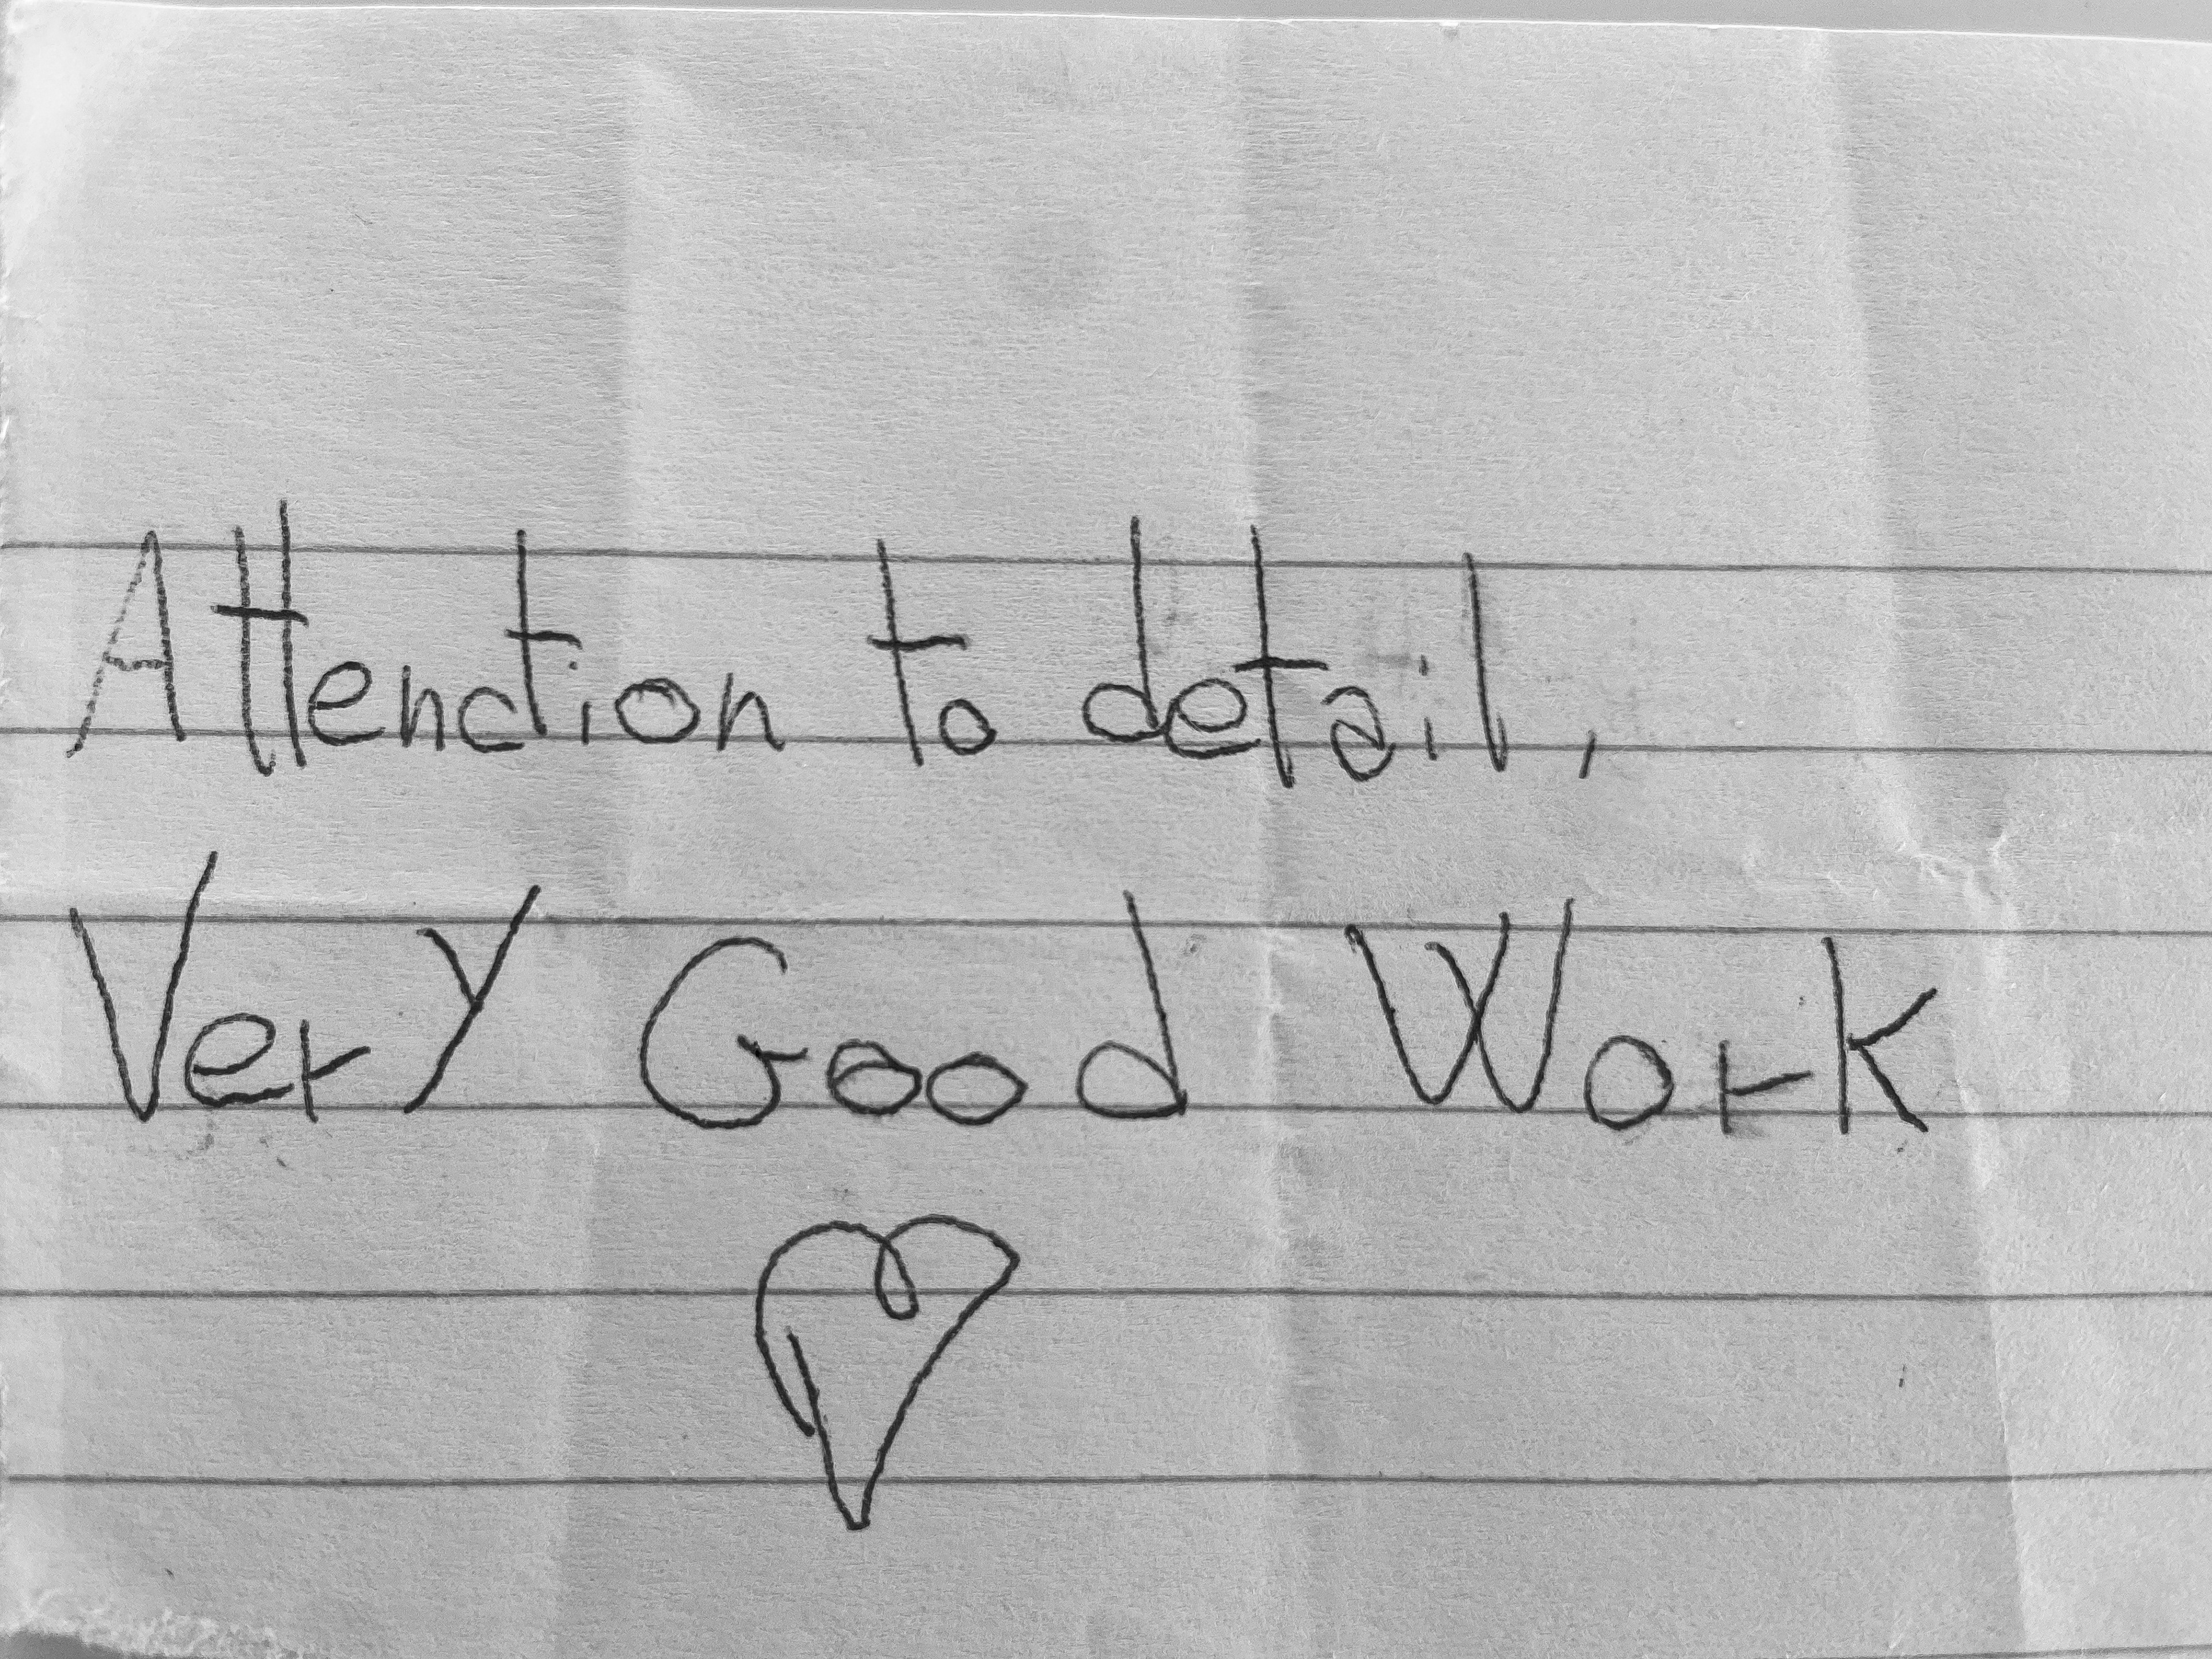 Attenction to detail,
Very Good Work